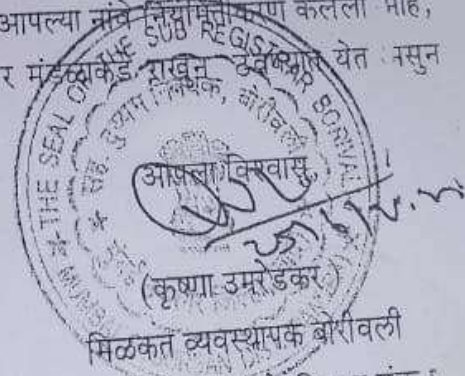 आपल्या नांवे नियमितीकरण केलेले आहे,
र मंडळाकडे राखून ठेवण्यात येत असुन
THE SEAL OF THE SUB REGISTRAR BORIVALI
सह. दुय्यम निबंधक, बोरीवली
आपला विश्वासु,
(कृष्णा उमरेडकर)
मिळकत व्यवस्थापक बोरीवली